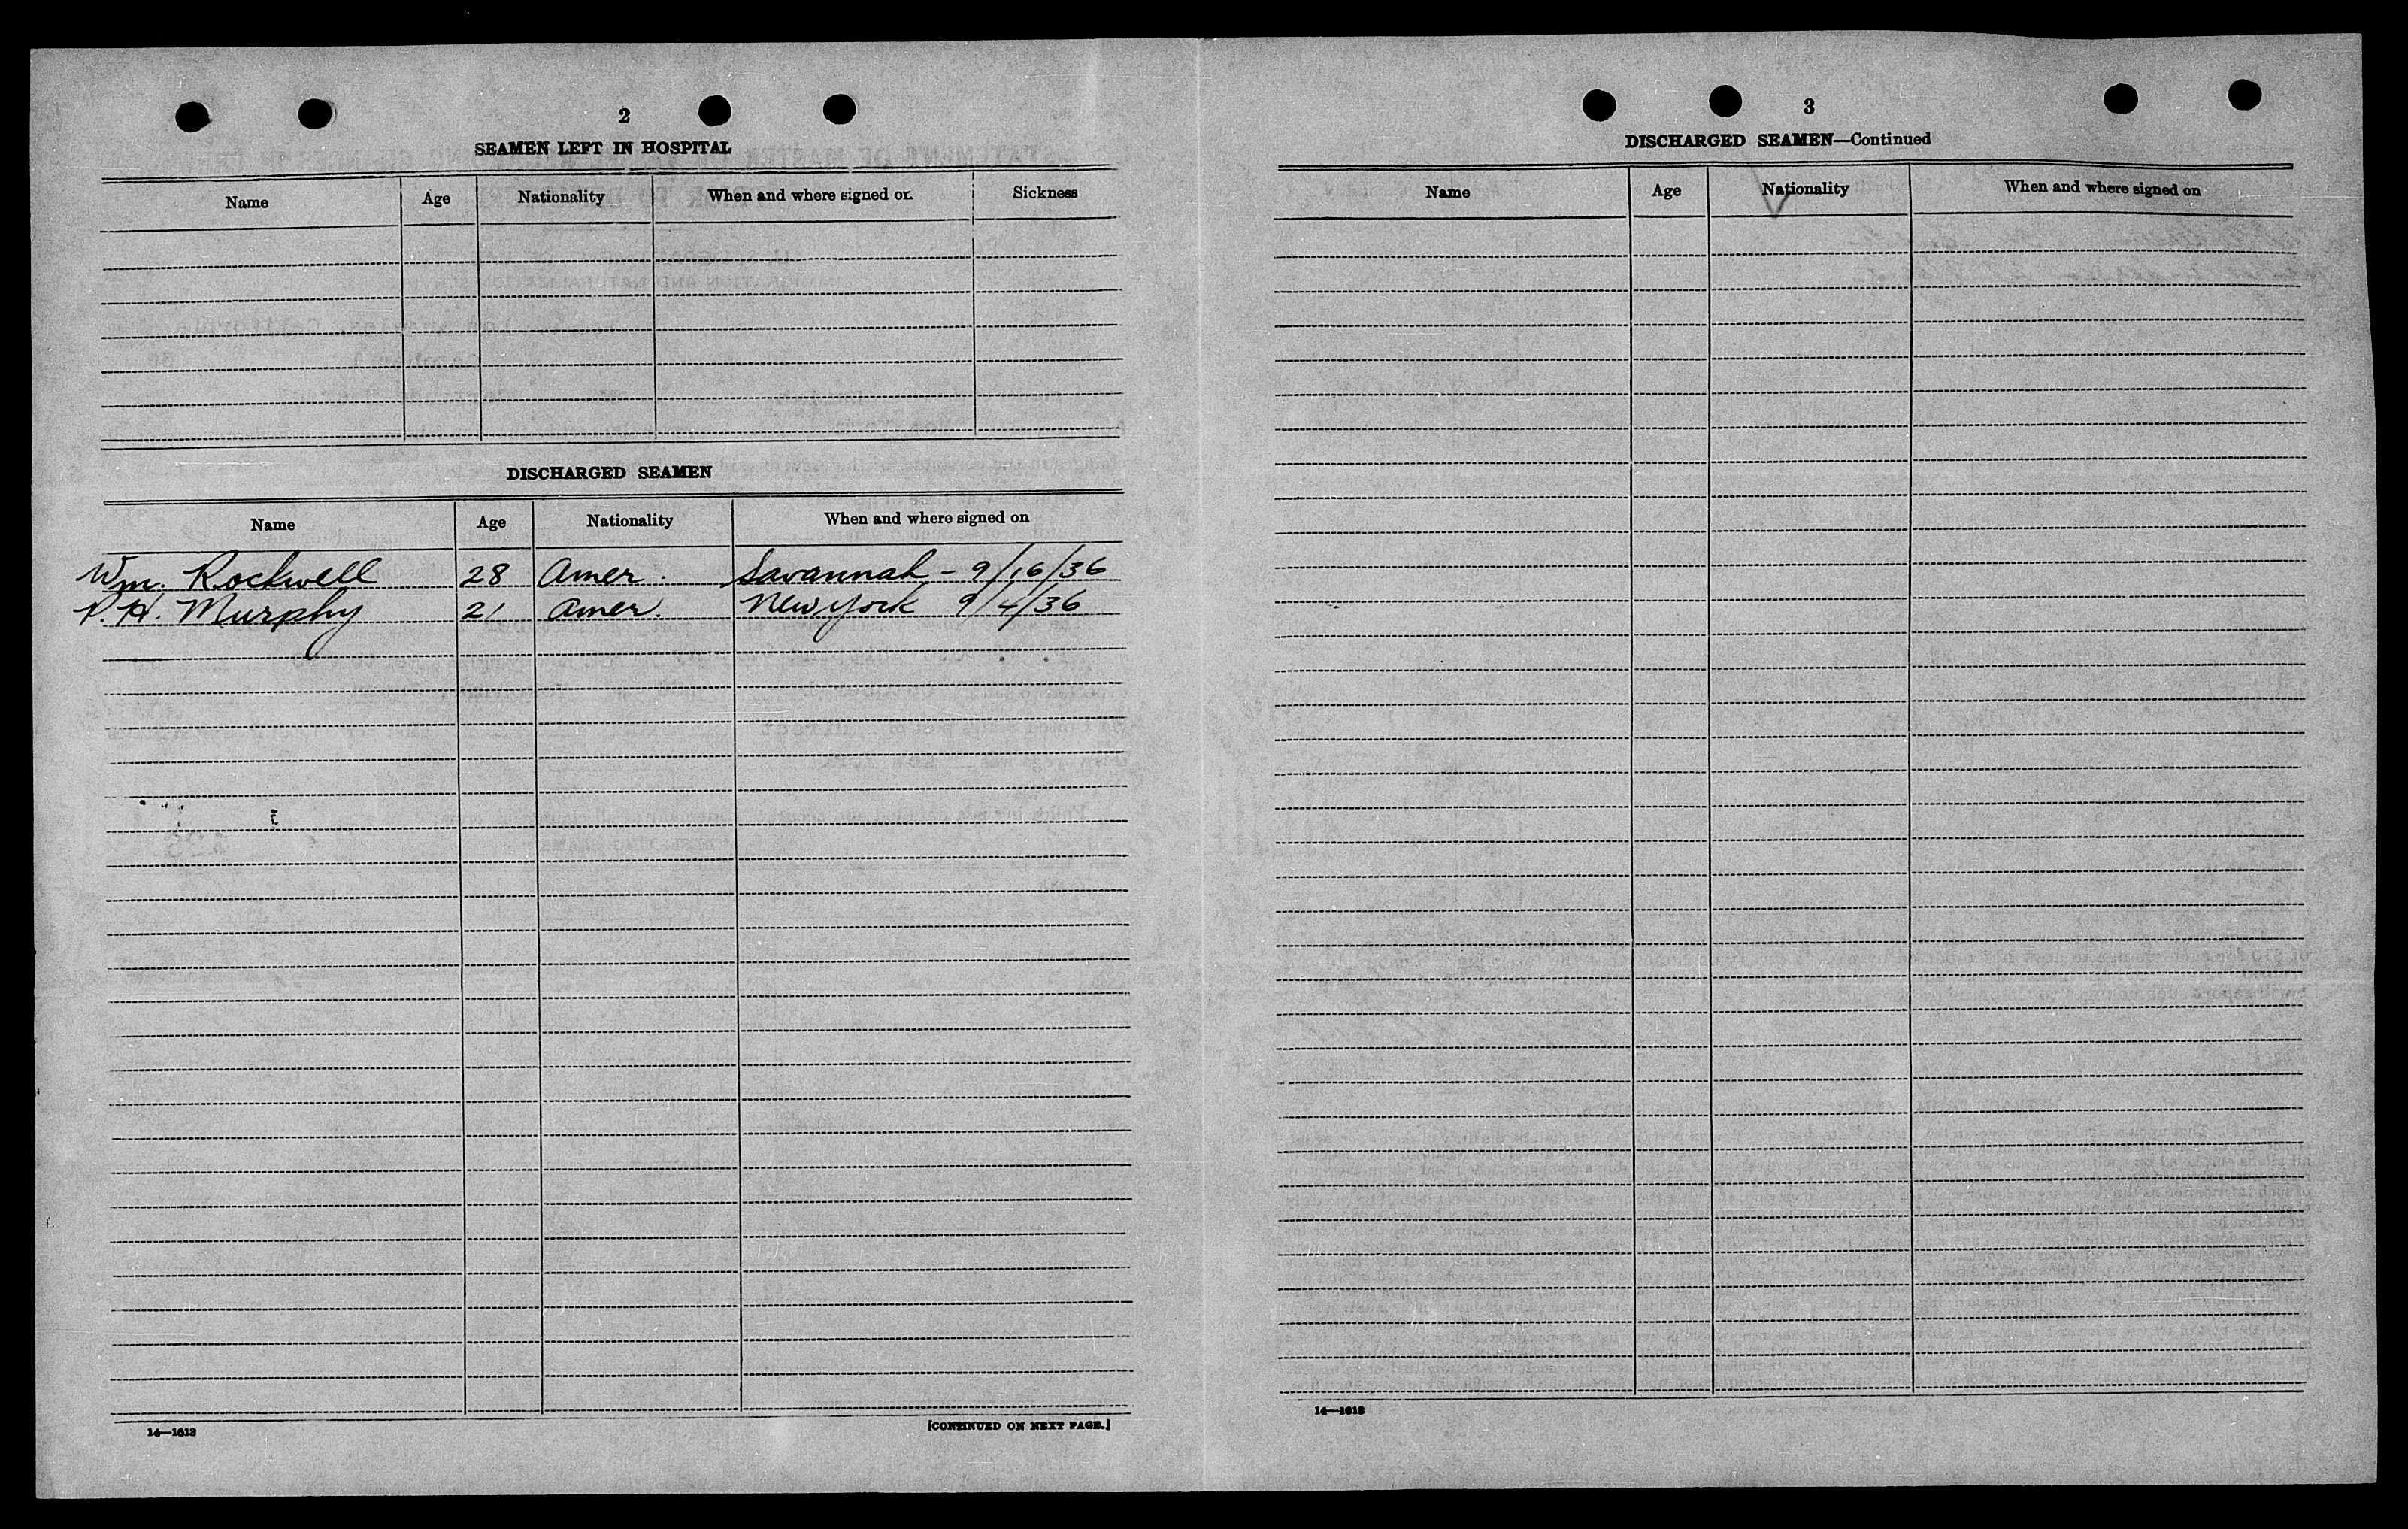 2
SEAMEN LEFT IN HOSPITAL
Name Age Nationality When and where signed on Sickness
DISCHARGED SEAMEN
Name Age Nationality When and where signed on
Wm. Rockwell 28 Amer. Savannah - 9/16/36
P.H. Murphy 21 Amer. New York 9/4/36
14—1613
[CONTINUED ON NEXT PAGE.]
3
DISCHARGED SEAMEN—Continued
Name Age Nationality When and where signed on
14—1613